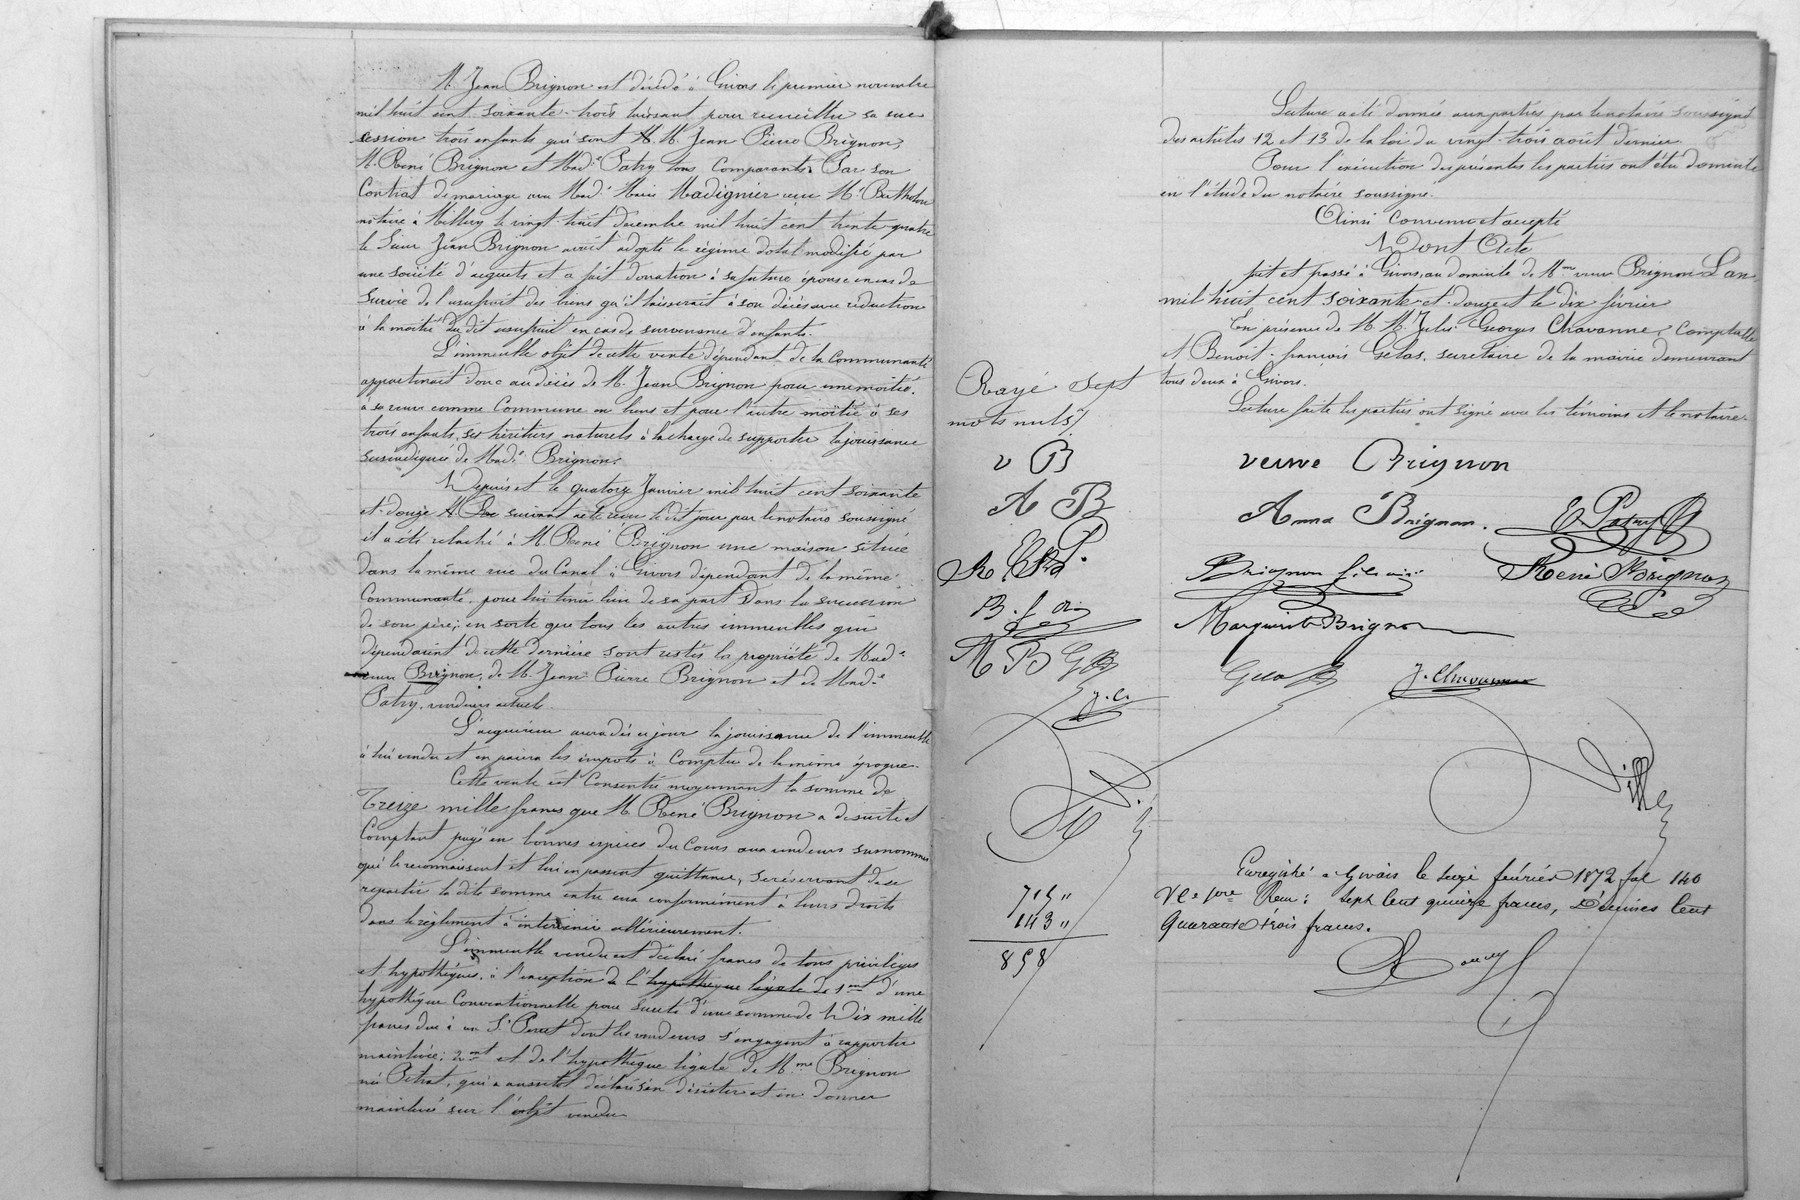 M. Jean Brignon est décédé à Givors le premier novembre
mil huit cent soixante-trois laissant pour recueillir sa suc
cession trois enfants qui sont M. M. Jean Pierre Brignon,
M. René Brignon et Mad.e Patry tous comparants. Par son
Contrat de mariage avec Mad.e Marie Madignier reçu Me Berthelon
notaire à Millery le vingt-huit décembre mil huit cent trente quatre
le Sieur Jean Brignon avait adopté le régime dotal modifié par
une société d'acquets et a fait donation à sa future épouse en cas de
Survie de l'usufruit des biens qu'il laisserait à son décès avec réduction
à la moitié du dit usufruit en cas de survenance d'enfants.
L'immeuble objet de cette vente dépendant de la Communauté
appartenait donc au décès de M. Jean Brignon pour une moitié
à sa veuve comme Commune en biens et pour l'autre moitié à ses
trois enfants, ses héritiers naturels à la charge de supporter la jouissance
susindiquée de Mad.e Brignon.
Depuis et le quatorze Janvier mil huit cent soixante
et-douze suivant acte reçu le dit jour par le notaire soussigné
il a été relaché à M. René Brignon une maison située
dans la même rue du Canal à Givors dépendant de la même
Communauté, pour lui tenir lieu de sa part dans la succession
de son père; en sorte que tous les autres immeubles qui
dépendaient de cette dernière sont restés la propriété de Mad.e
veuve Brignon, de M. Jean Pierre Brignon et de Mad.e
Patry, vendeurs actuels.
L'acquéreur aura dès ce jour la jouissance de l'immeuble
à lui vendu et en paiera les impots à Compter de la même époque.
Cette vente est Consentie moyennant la somme de
Treize mille francs que M. René Brignon a de suite et
Comptant payé en bonnes espèces du Cours aux vendeurs susnommés
qui le reconnaissent et lui en passent quittance, se réservant de se
repartir la dite somme entre eux conformément à leurs droits
dans le règlement à intervenir ultérieurement.
L'immeuble vendu est déclaré franc de tous privilèges
et hypothèques, à l'exception de l'hypothèque légale de 1ent d'une
hypothèque Conventionnelle pour sureté d'une somme de Dix mille
francs due à un Sr dont les vendeurs s'engagent à rapporter
mainlevée; 2ent et de l'hypothèque légale de Mme Brignon
née Petrat, qui a aussitot déclaré s'en désister et en donner
mainlevée sur l'objet vendu
Lecture a été donnée aux parties par le notaire soussigné
des articles 12 et 13 de la loi du vingt-trois août dernier.
Pour l'exécution des présentes les parties ont élu domicile
en l'étude du notaire soussigné.
Ainsi Convenu et accepté
Dont Acte
fait et passé à Givors, au domicile de Mme veuve Brignon L'an
mil huit cent soixante-et-douze et le dix février
En présence de M. M. Jules Georges Chavanne, Comptable
et Benoit-françois Gelas, secretaire de la mairie demeurant
tous deux à Givors.
Lecture faite les parties ont signé avec les témoins et le notaire.
Rayé sept
mots nuls
v B
A B
R B
B. f
M B G
J. C.
veuve Brignon
Anna Brignon. E Patry
Brignon fils ainé René Brignon
Marguerite Brignon
Gelas J. Chavanne
Enregistré à Givors le seize février 1872 fol 140
Vo Reçu: Sept Cent quinze francs, Décimes Cent
Quarante trois francs.
715 "
143 "
858